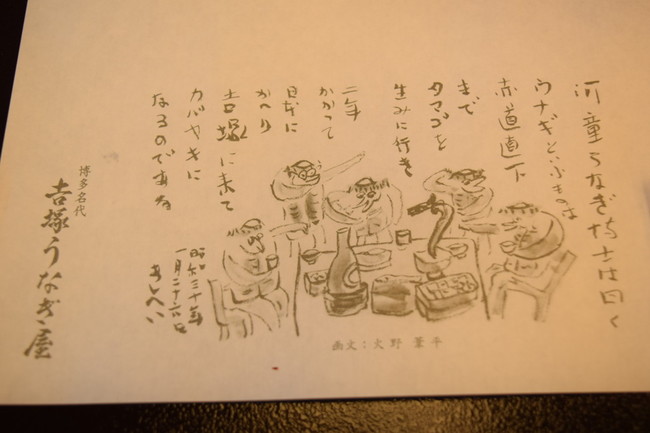 河童うなぎ博士は曰く
ウナギといふものは
赤道直下
まで
タマゴを
生みに行き
二年
かかって
日本に
かへり
吉塚に来て
カバヤキに
なるのである
昭和三十年
一月二十六日
あしへい
画文：火野葦平
博多名代
吉塚うなぎ屋